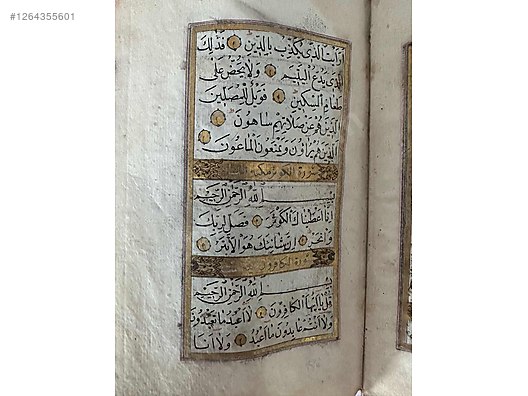 #1264355601
رَأَيْتَ الَّذِي يُكَذِّبُ بِالدِّينِ فَذٰلِكَ
الَّذِي يَدُعُّ الْيَتِيمَ وَلَا يَحُضُّ عَلٰى
طَعَامِ الْمِسْكِينِ فَوَيْلٌ لِلْمُصَلِّينَ
الَّذِينَ هُمْ عَنْ صَلَاتِهِمْ سَاهُونَ
الَّذِينَ هُمْ يُرَاؤُنَ وَيَمْنَعُونَ الْمَاعُونَ
سورة الكوثر مكية
بِسْمِ اللّٰهِ الرَّحْمٰنِ الرَّحِيمِ
اِنَّا اَعْطَيْنَاكَ الْكَوْثَرَ فَصَلِّ لِرَبِّكَ
وَانْحَرْ اِنَّ شَانِئَكَ هُوَ الْاَبْتَرُ
سورة الكافرون
بِسْمِ اللّٰهِ الرَّحْمٰنِ الرَّحِيمِ
قُلْ يَا اَيُّهَا الْكَافِرُونَ لَا اَعْبُدُ مَا تَعْبُدُونَ
وَلَا اَنْتُمْ عَابِدُونَ مَا اَعْبُدُ وَلَا اَنَا